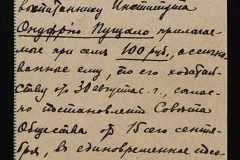 воспитаннику Института
Онуфрію Пущало, прилагае-
мые при семъ 100 руб., ассигно-
ванные ему, по его ходатай-
ству отъ 30 августа с. г., соглас-
но постановленію Совѣта
Общества отъ 15 сего сентя-
бря, въ единовременное